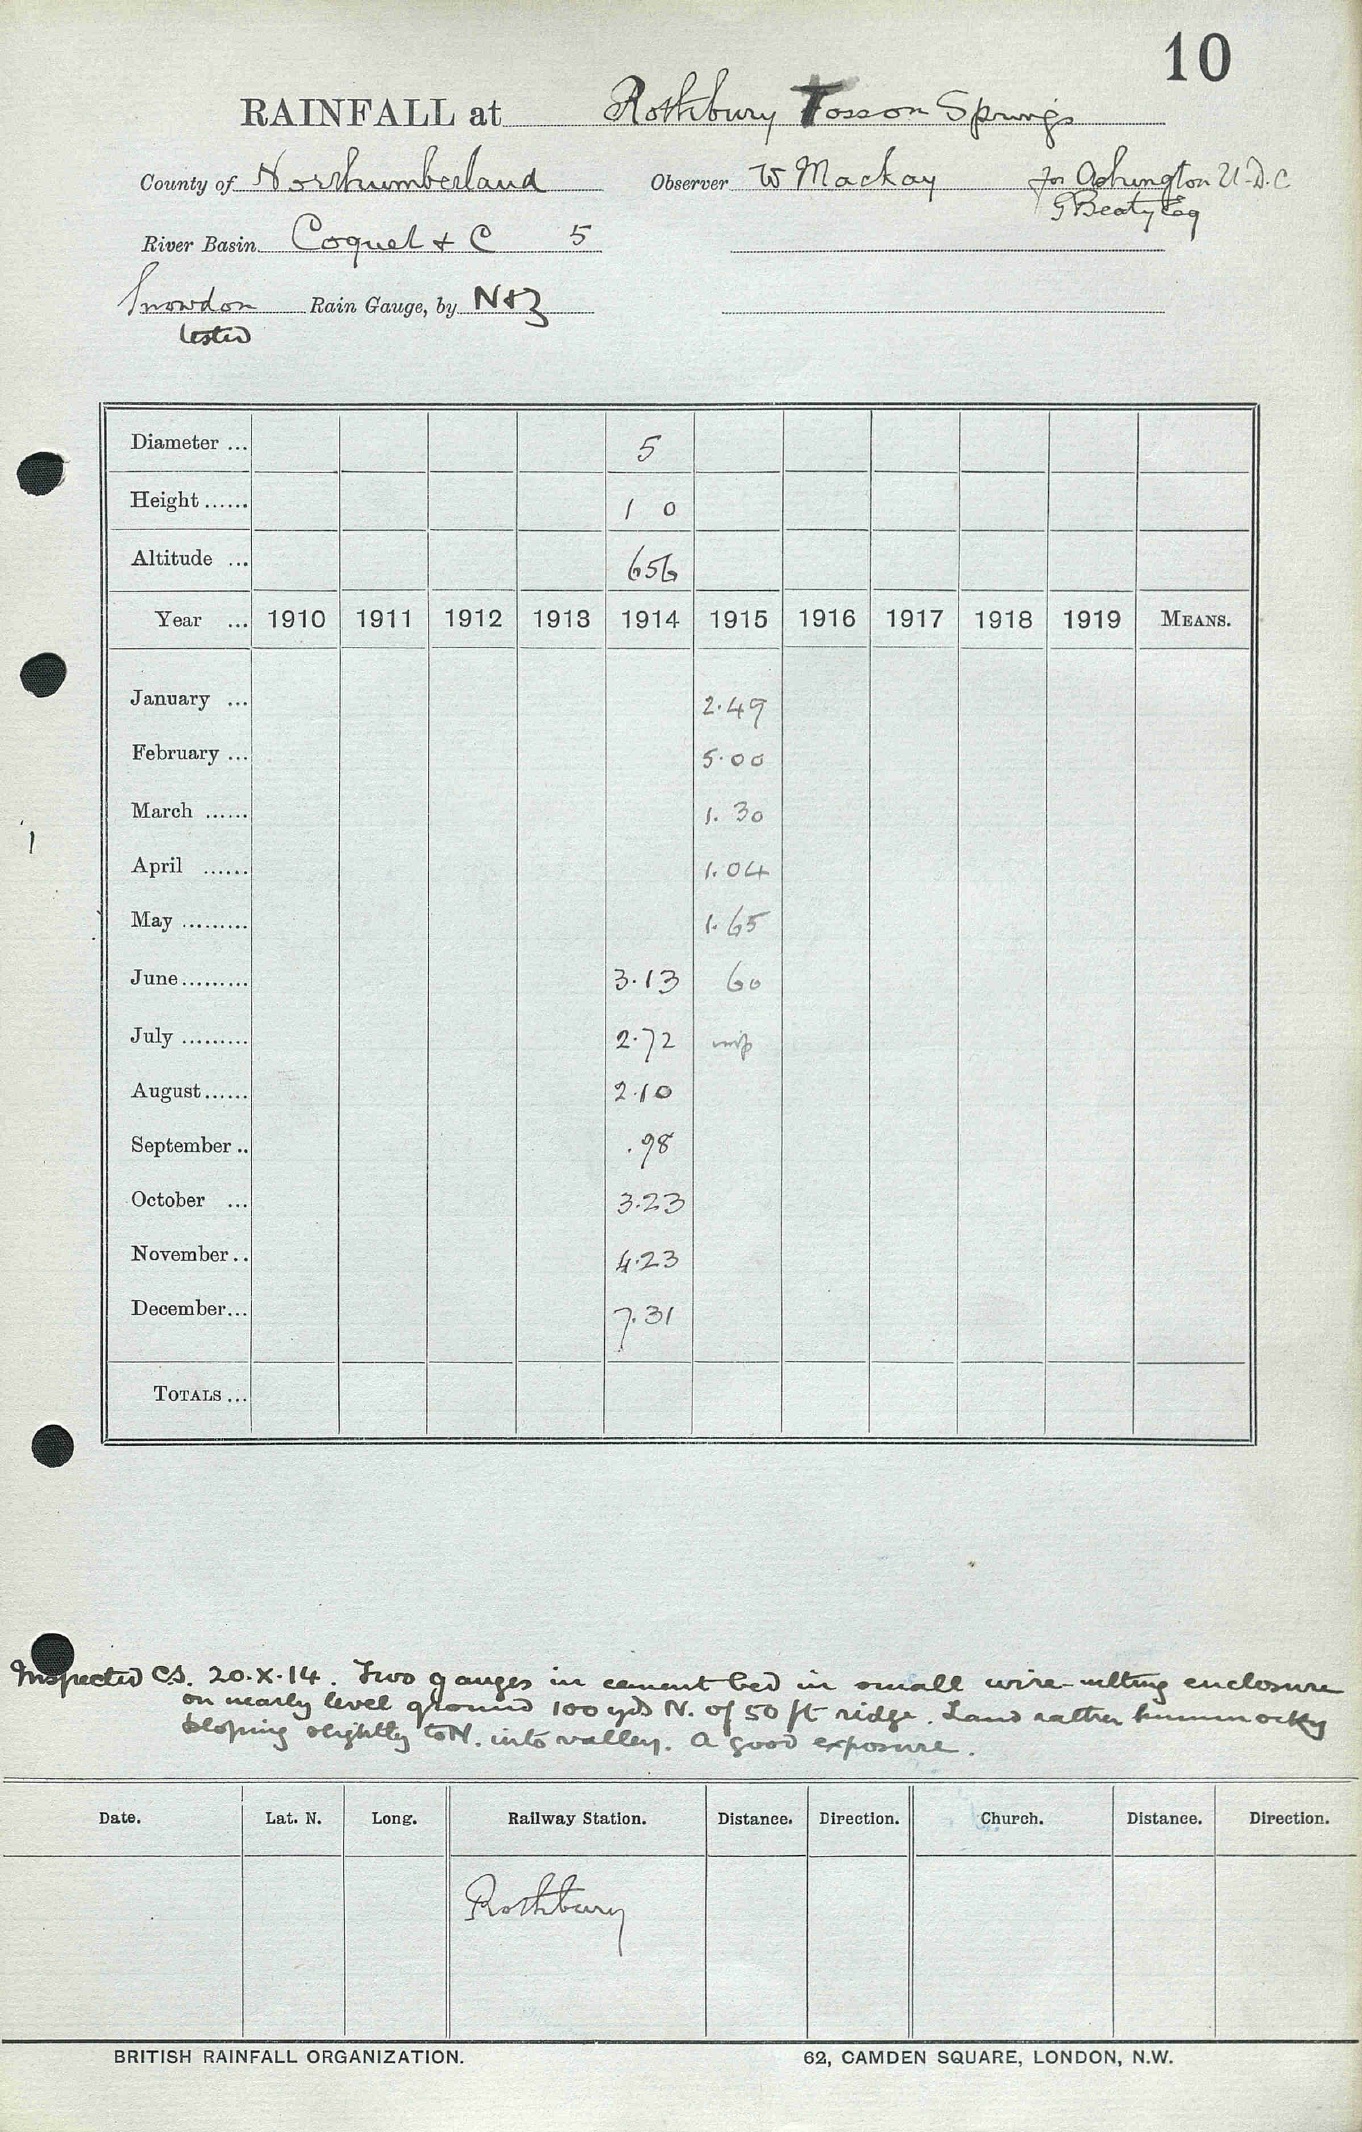 10
RAINFALL at Rothbury Tosson Springs
County of Northumberland Observer W Mackay for Ashington U.D.C
G Beaty Esq
River Basin Coquet & C 5
Snowdon Rain Gauge, by N&Z
tested
Diameter ... 5
Height ...... 1 0
Altitude ... 656
Year ... 1910 1911 1912 1913 1914 1915 1916 1917 1918 1919 MEANS.
January ... 2.49
February ... 5.00
March ...... 1.30
April ...... 1.04
May ......... 1.65
June ......... 3.13 60
July ......... 2.72
August ...... 2.10
September .. .98
October ... 3.23
November .. 4.23
December ... 7.31
TOTALS ...
Inspected CS. 20.X.14. Two gauges in cement bed in small wire-netting enclosure
on nearly level ground 100 yds N. of 50 ft ridge. Land rather hummocky
sloping slightly to N. into valley. A good exposure.
Date. Lat. N. Long. Railway Station. Distance. Direction. Church. Distance. Direction.
Rothbury
BRITISH RAINFALL ORGANIZATION. 62, CAMDEN SQUARE, LONDON, N.W.